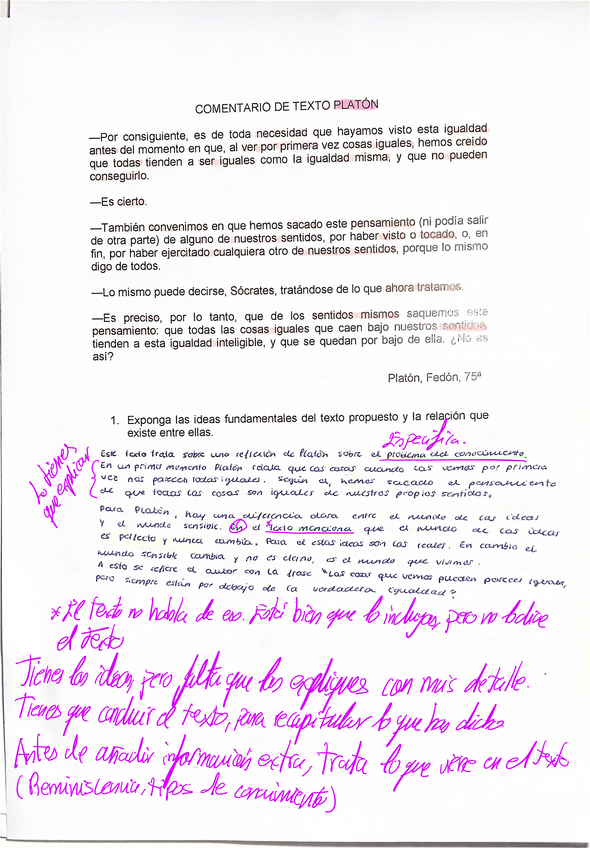 COMENTARIO DE TEXTO PLATÓN
—Por consiguiente, es de toda necesidad que hayamos visto esta igualdad
antes del momento en que, al ver por primera vez cosas iguales, hemos creído
que todas tienden a ser iguales como la igualdad misma, y que no pueden
conseguirlo.
—Es cierto.
—También convenimos en que hemos sacado este pensamiento (ni podía salir
de otra parte) de alguno de nuestros sentidos, por haber visto o tocado, o, en
fin, por haber ejercitado cualquiera otro de nuestros sentidos, porque lo mismo
digo de todos.
—Lo mismo puede decirse, Sócrates, tratándose de lo que ahora tratamos.
—Es preciso, por lo tanto, que de los sentidos mismos saquemos este
pensamiento: que todas las cosas iguales que caen bajo nuestros sentidos,
tienden a esta igualdad inteligible, y que se quedan por bajo de ella. ¿No es
así?
Platón, Fedón, 75ª
1. Exponga las ideas fundamentales del texto propuesto y la relación que
existe entre ellas.
Especifica.
Este texto trata sobre una reflexión de Platón sobre el problema del conocimiento.
Lo tienes
que explicar
En un primer momento Platón relata que las cosas cuando las vemos por primera
vez nos parecen todas iguales. Según él, hemos sacado el pensamiento
de que todas las cosas son iguales de nuestros propios sentidos.
Para Platón, hay una diferencia clara entre el mundo de las ideas
y el mundo sensible. En el texto menciona que el mundo de las ideas
es perfecto y nunca cambia. Para el estas ideas son las reales. En cambio el
mundo sensible cambia y no es eterno, es el mundo que vivimos.
A esto se refiere el autor con la frase "Las cosas que vemos pueden parecer iguales,
pero siempre están por debajo de la verdadera igualdad".
* El texto no habla de eso. Está bien que lo incluyas, pero no lo dice
el texto
Tienes las ideas, pero falta que las expliques con más detalle.
Tienes que concluir el texto, para recapitular lo que has dicho
Antes de añadir información extra, trata lo que viene en el texto
(Reminiscencia, tipos de conocimiento)